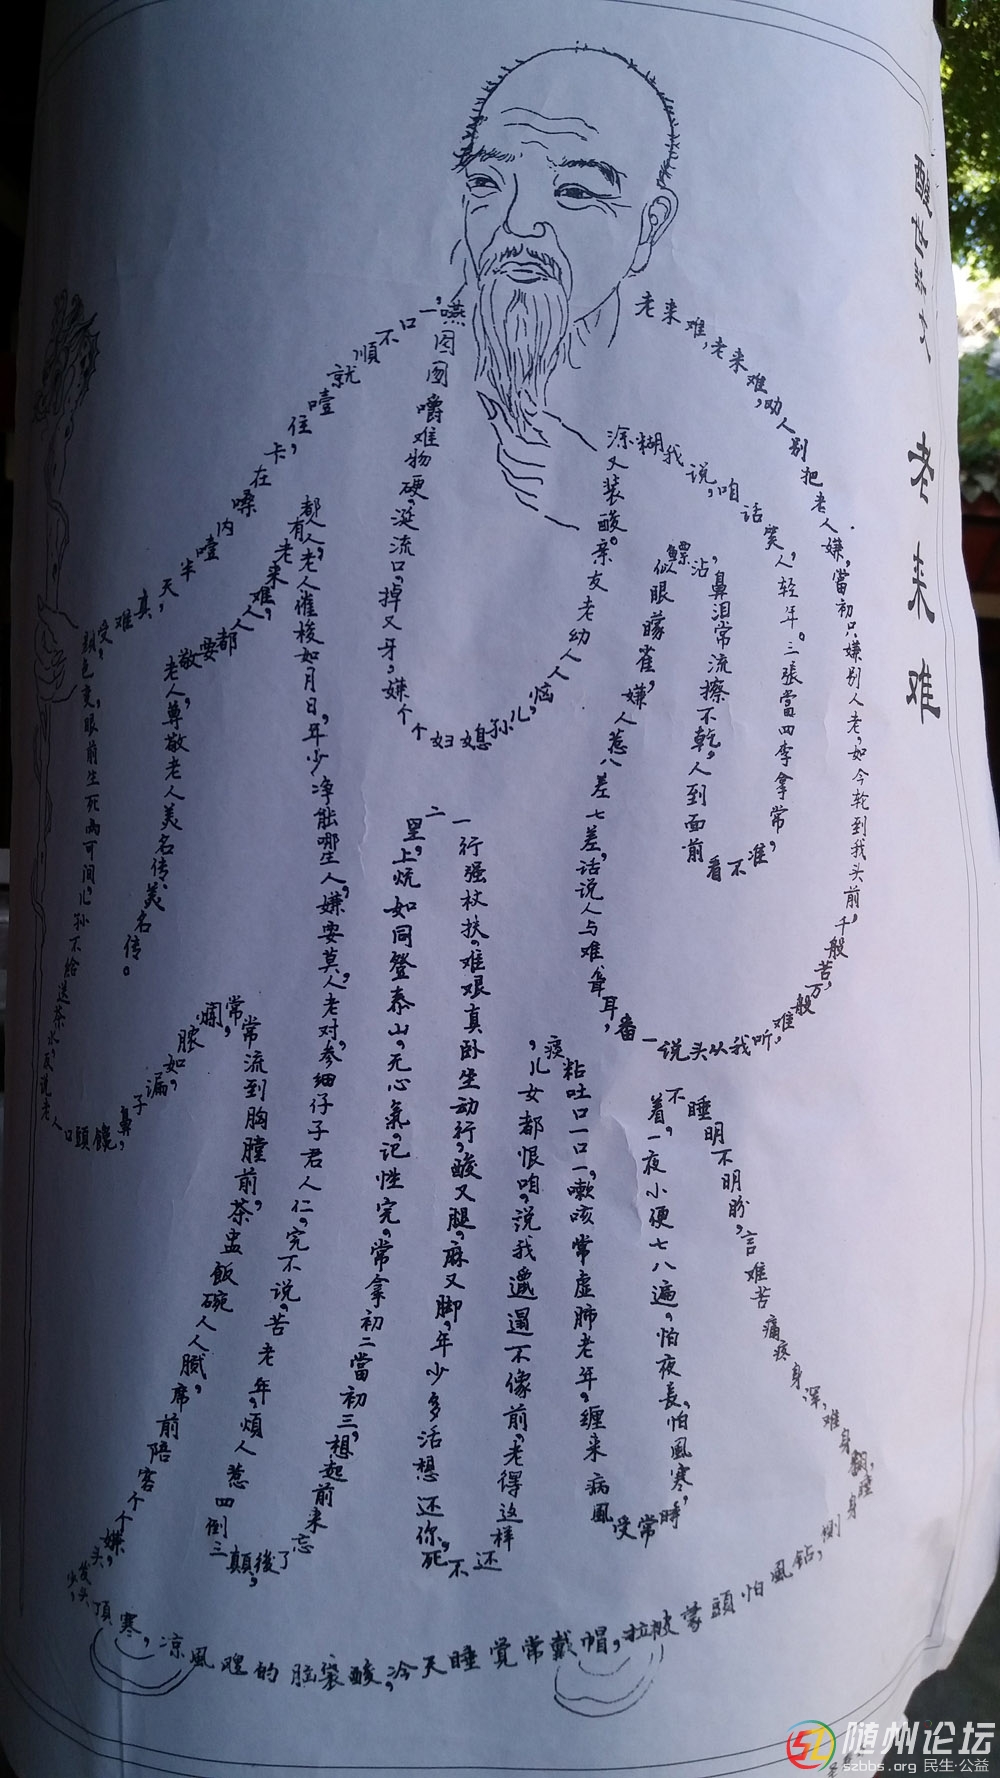 醒世铭文 老来难
老来难,老来难,劝人别把老人嫌,
當初只嫌别人老,如今轮到我头前,
千般苦,万般难,听我从头说一番,
耳聋难与人说话,差七差八惹人嫌,
雀矇眼似鳔沾,鼻泪常流擦不乾,
人到面前看不准,常拿李四當張三。
年轻人,笑话咱,说我糊涂又装酸。
亲友老幼人人恼,儿孙媳妇个个嫌,
牙又掉,口流涎,硬物难嚼囫囵嚥,
一口不順就噎住,卡在嗓内噎半天,
真难受,颜色变,眼前生死両可间,
儿孙不給送茶水,反说老人口頭馋,
鼻子漏,如脓烂,常常流到胸膛前,
茶盅飯碗人人腻,席前陪客个个嫌,
头发少,头顶寒,凉風飕的脑袋酸,
冷天睡觉常戴帽,拉被蒙頭怕風钻,
侧身睡,翻身难,深身疼痛苦难言,
盼明不明睡不着,一夜小便七八遍。
怕夜長,怕風寒,時常受風病来缠,
年老肺虚常咳嗽,一口一口吐粘痰,
儿女都恨咱,说我邋遢不像前,
老得这样还不死,你还想活多少年,
脚又麻,腿又酸,行动坐卧真艰难,
扶杖强行一二里,上炕如同登泰山,
无心氣,记性完,常拿初二當初三,
想起前来忘了後,颠三倒四惹人煩,
年老苦。说不完。仁人君子仔细参,
对老人莫要嫌,人生哪能净少年,
日月如梭催人老,人人都有老来难,
人人都要敬老人,尊敬老人美名传。美名传。
随州论坛
szbbs.org 民生·公益